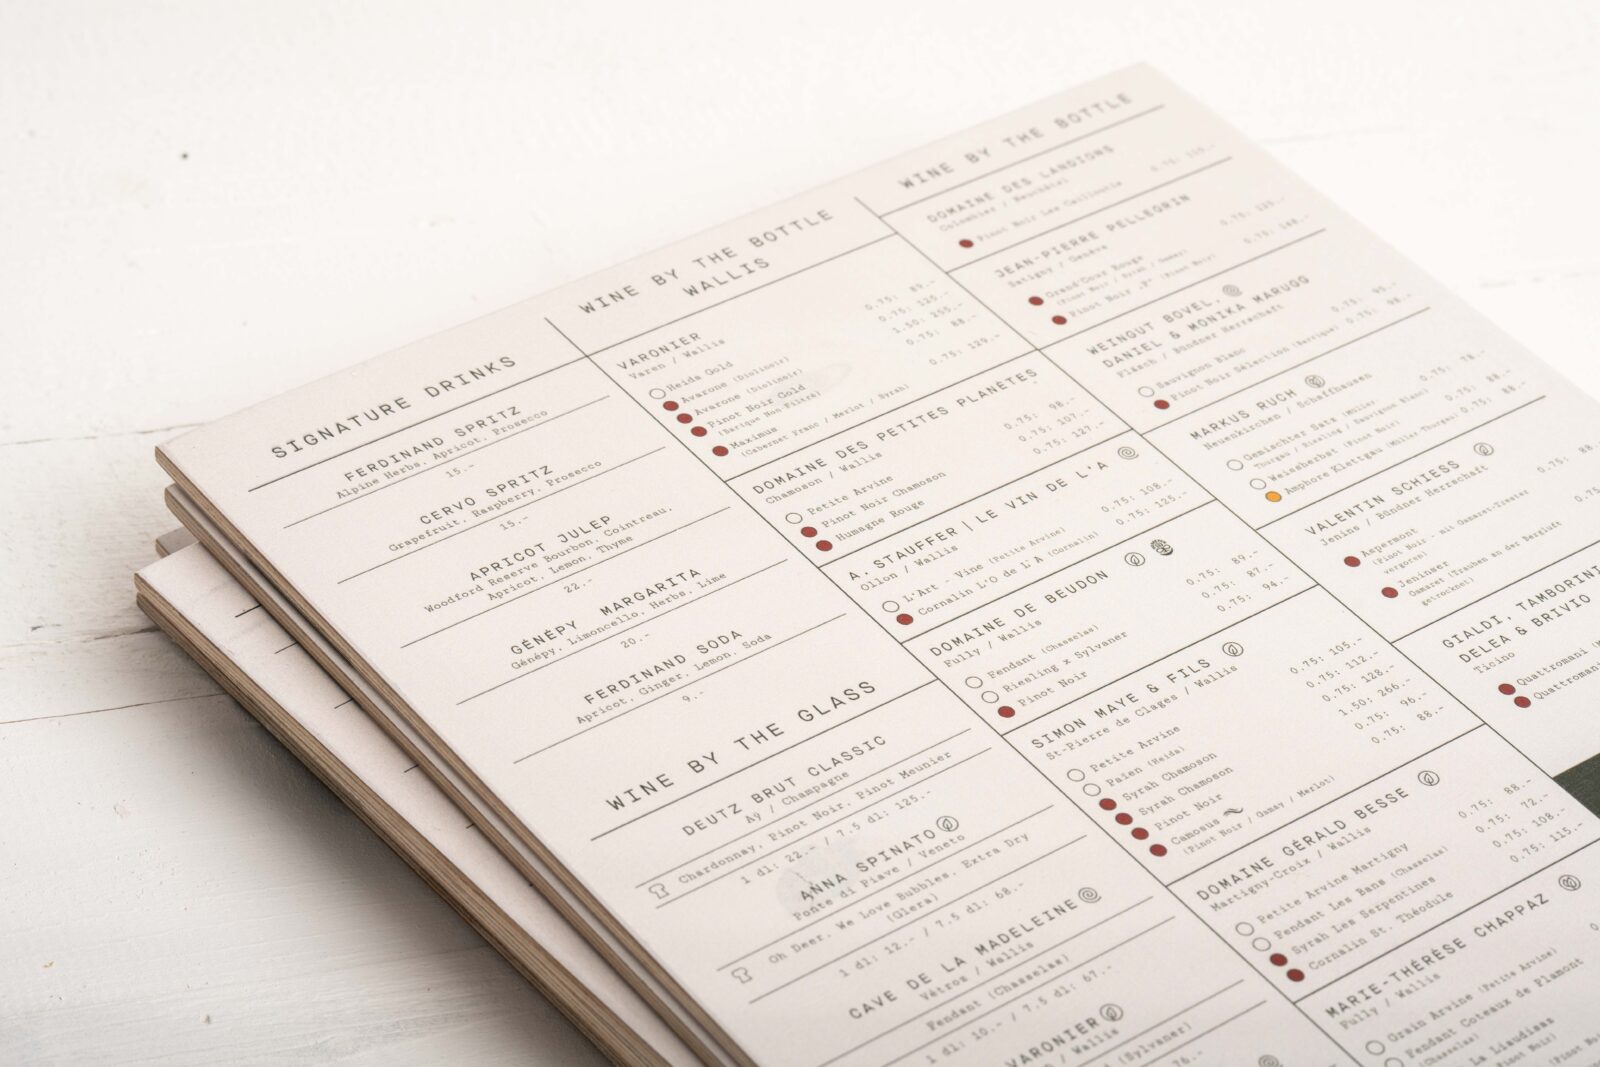 SIGNATURE DRINKS
FERDINAND SPRITZ
Alpine Herbs, Apricot, Prosecco
15.-
CERVO SPRITZ
Grapefruit, Raspberry, Prosecco
15.-
APRICOT JULEP
Woodford Reserve Bourbon, Cointreau,
Apricot, Lemon, Thyme
22.-
GÉNÉPY MARGARITA
Génépy, Limoncello, Herbs, Lime
20.-
FERDINAND SODA
Apricot, Ginger, Lemon, Soda
9.-
WINE BY THE GLASS
DEUTZ BRUT CLASSIC
Aÿ / Champagne
Chardonnay, Pinot Noir, Pinot Meunier
1 dl: 22.- / 7.5 dl: 125.-
ANNA SPINATO
Ponte di Piave / Veneto
Oh Deer, We Love Bubbles, Extra Dry
(Glera)
1 dl: 12.- / 7.5 dl: 68.-
CAVE DE LA MADELEINE
Vétroz / Wallis
Fendant (Chasselas)
1 dl: 10.- / 7.5 dl: 67.-
VARONIER
/ Wallis
(Sylvaner)
76.-
WINE BY THE BOTTLE
WALLIS
VARONIER
Varen / Wallis
Heida Gold 0.75: 89.-
Avarone (Diolinoir) 0.75: 125.-
Avarone (Diolinoir) 1.50: 255.-
Pinot Noir Gold 0.75: 88.-
(Barique Non-Filtré)
Maximus 0.75: 129.-
(Cabernet Franc / Merlot / Syrah)
DOMAINE DES PETITES PLANÈTES
Chamoson / Wallis
Petite Arvine 0.75: 98.-
Pinot Noir Chamoson 0.75: 107.-
Humagne Rouge 0.75: 127.-
A. STAUFFER | LE VIN DE L'A
Ollon / Wallis
L'Art - Vine (Petite Arvine) 0.75: 108.-
Cornalin L'O de L'A (Cornalin) 0.75: 125.-
DOMAINE DE BEUDON
Fully / Wallis
Fendant (Chasselas) 0.75: 89.-
Riesling x Sylvaner 0.75: 87.-
Pinot Noir 0.75: 94.-
SIMON MAYE & FILS
St-Pierre de Clages / Wallis
Petite Arvine 0.75: 105.-
Païen (Heida) 0.75: 112.-
Syrah Chamoson 0.75: 128.-
Syrah Chamoson 1.50: 266.-
Pinot Noir 0.75: 96.-
Camosus 0.75: 88.-
(Pinot Noir / Gamay / Merlot)
DOMAINE GÉRALD BESSE
Martigny-Croix / Wallis
Petite Arvine Martigny 0.75: 88.-
Fendant Les Bans (Chasselas) 0.75: 72.-
Syrah Les Serpentines 0.75: 108.-
Cornalin St. Théodule 0.75: 115.-
MARIE-THÉRÈSE CHAPPAZ
Fully / Wallis
Grain Arvine (Petite Arvine)
Fendant Coteaux de Plamont
(Chasselas)
La Liaudisaz
WINE BY THE BOTTLE
DOMAINE DES LANDIONS
Colombier / Neuchâtel
Pinot Noir Les Cailloutis 0.75:
JEAN-PIERRE PELLEGRIN
Satigny / Genève
Grand'Cour Rouge 0.75:
Pinot Noir „P“ (Pinot Noir) 0.75:
WEINGUT BOVEL,
DANIEL & MONIKA MARUGG
Fläsch / Bündner Herrschaft
Sauvignon Blanc 0.75:
Pinot Noir Sélection (Barrique) 0.75: 98.-
MARKUS RUCH
Neuenkirchen / Schaffhausen
Gemischter Satz (Müller-
Thurgau / Riesling / Sauvignon Blanc) 0.75: 78.-
Weissherbst (Pinot Noir) 0.75: 88.-
Amphore Klettgau (Müller-Thurgau) 0.75: 88.-
VALENTIN SCHIESS
Jenins / Bündner Herrschaft
Aspermont 0.75: 88.
(Pinot Noir - mit Gamaret-Trester
vergoren)
Jeninser 0.75
Gamaret (Trauben an der Bergluft
getrocknet)
GIALDI, TAMBORINI
DELEA & BRIVIO
Ticino
Quattromani
Quattromani